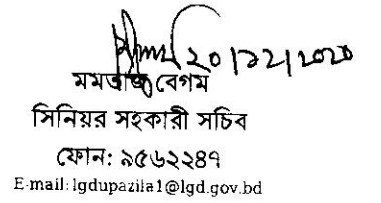 ২০/১২/২০২০
মমতাজ বেগম
সিনিয়র সহকারী সচিব
ফোন: ৯৫৬২২৪৭
E-mail: lgdupazila1@lgd.gov.bd